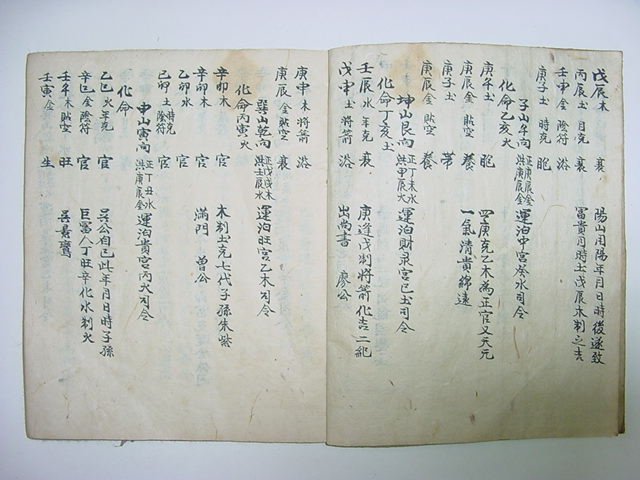 戊辰木 衰 陽山用陽年月日時後遂致
丙辰土 月克 衰 富貴月時土戊辰木制之吉
壬申金 陰符 浴
庚子土 時克 胞
子山午向 正庚辰金 洪庚辰金 運泊中宮癸水司令
化命乙亥火
庚午土 胞 四庚克乙木為正官又天元
庚辰金 貼空 養 一氣清貴綿遠
庚子土 帶
庚辰金 貼空 養
坤山艮向 正丁未水 洪甲辰火 運泊財泉宮己土司令
化命丁亥土
壬辰水 年克 衰 庚逢戊制將箭化吉二紀
戊申土 將箭 浴 出尚書 廖公
庚申木 將箭 浴
庚辰金 貼空 衰
巽山乾向 正戊戌木 洪壬辰水 運泊旺宮乙木司令
化命丙寅火
辛卯木 官 木制土克七代子孫朱紫
辛卯木 官 滿門 曾公
乙卯水 官
己卯土 時克 陰符 官
申山寅向 正丁丑水 洪庚辰金 運泊貴宮丙火司令
化命
乙巳火 年克 官 吳公自己此年月日時子孫
辛巳金 陰符 官 巨富人丁旺辛化水制火
壬午木 貼空 旺 吳景鸞
壬寅金 生